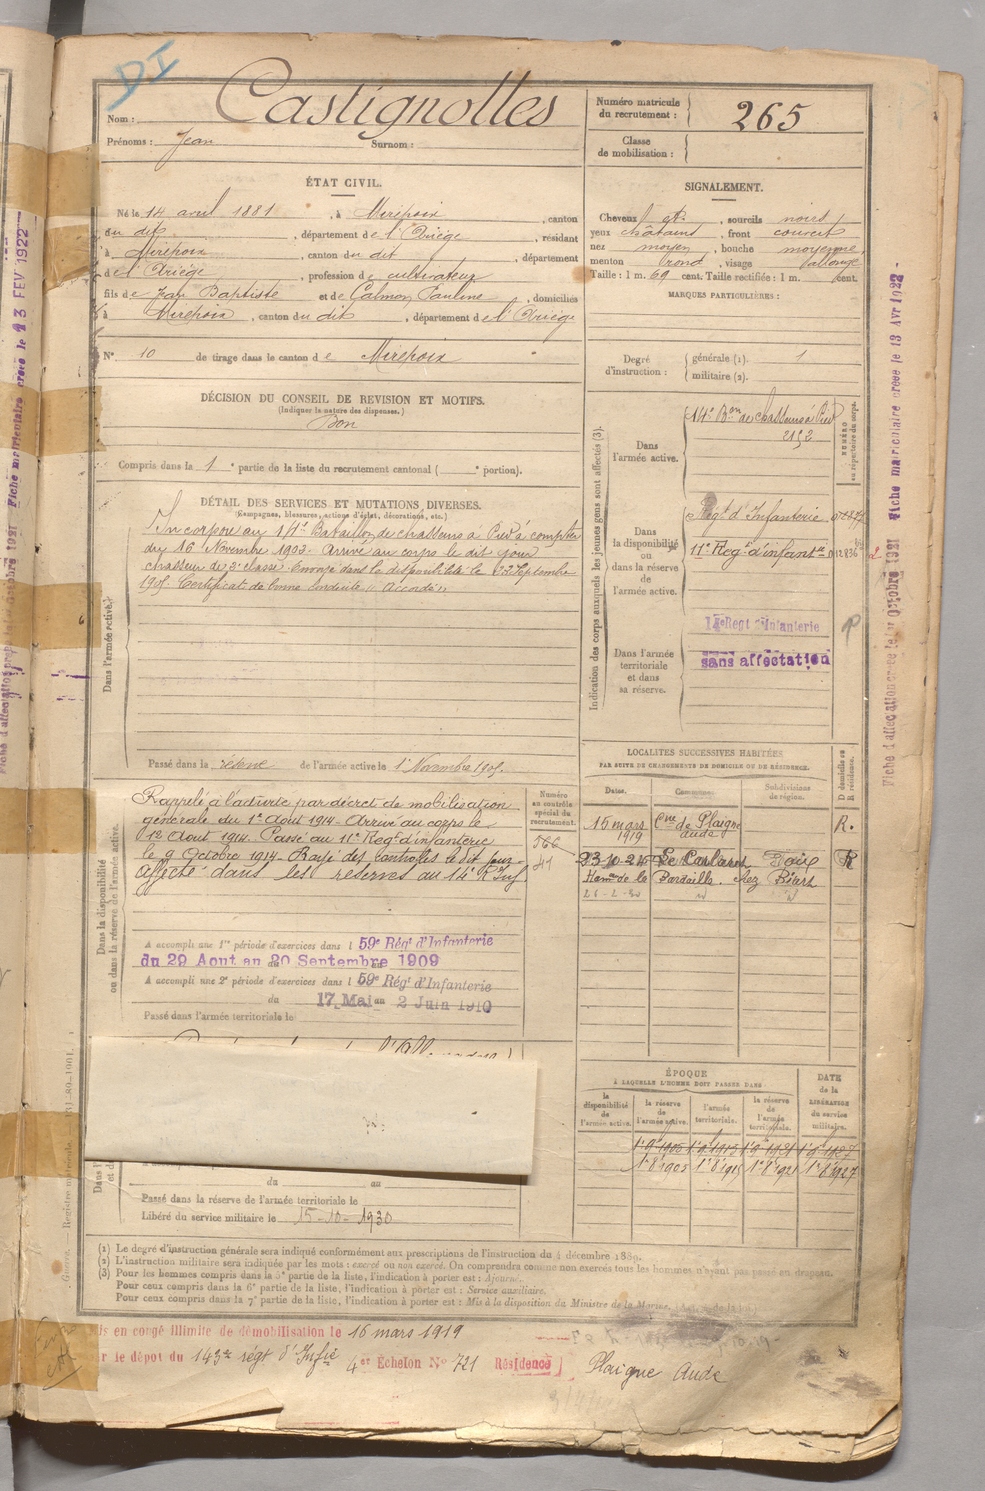 DI
Nom : Castignolles
Prénoms : Jean Surnom :
Numéro matricule
du recrutement : 265
Classe
de mobilisation :
ÉTAT CIVIL.
Né le 14 avril 1881, à Mirepoix, canton
du dit, département de l'Ariège, résidant
à Mirepoix, canton du dit, département
de l'Ariège, profession de cultivateur
fils de Jean Baptiste et de Calmon Pauline, domiciliés
à Mirepoix, canton du dit, département de l'Ariège
N° 10 de tirage dans le canton de Mirepoix
SIGNALEMENT.
Cheveux, sourcils noirs
yeux châtains, front couvert
nez moyen, bouche moyenne
menton rond, visage allongé
Taille : 1 m. 69 cent. Taille rectifiée : 1 m. cent.
MARQUES PARTICULIÈRES :
Degré
d'instruction :
générale (1). 1
militaire (2).
DÉCISION DU CONSEIL DE REVISION ET MOTIFS.
(Indiquer la nature des dispenses.)
Bon
Compris dans la 1e partie de la liste du recrutement cantonal ( e portion).
DÉTAIL DES SERVICES ET MUTATIONS DIVERSES.
(Campagnes, blessures, actions d'éclat, décorations, etc.)
Dans l'armée active.
Incorporé au 14e Bataillon de chasseurs à Pied à compter
du 16 Novembre 1903. Arrivé au corps le dit jour
chasseur de 2e classe. Envoyé dans la disponibilité le 23 Septembre
1905. Certificat de bonne conduite "Accordé"
Passé dans la réserve de l'armée active le 1er Novembre 1905.
Indication des corps auxquels les jeunes gens sont affectés (3).
NUMÉRO
au répertoire du corps.
Dans
l'armée active.
14e Bon de chasseurs à Pied
2152
Dans
la disponibilité
ou
dans la réserve
de
l'armée active.
Régt d'Infanterie
11e Régt d'infantie
Dans l'armée
territoriale
et dans
sa réserve.
Regt Infanterie
sans affectation
LOCALITÉS SUCCESSIVES HABITÉES
PAR SUITE DE CHANGEMENTS DE DOMICILE OU DE RÉSIDENCE.
Dates. Communes. Subdivisions
de région.
D domicile ou
R résidence.
16 mars
1919 Cne de Plaigne
Aude R.
23-10-25 Le Carlaret Foix R
Ham. de la Bardaille. chez
Dans la disponibilité
ou dans la réserve de l'armée active.
Numéro
au contrôle
spécial du
recrutement.
566
41
Rappelé à l'activité par décret de mobilisation
générale du 1er Août 1914. Arrivé au corps le
12 Août 1914. Passé au 11e Régt d'infanterie
le 9 Octobre 1914. Rayé des contrôles le dit jour
Affecté dans les réserves au 14e R Inf
A accompli une 1re période d'exercices dans l 59e Régt d'Infanterie
du 29 Aout au 20 Septembre 1909
A accompli une 2e période d'exercices dans l 59e Régt d'Infanterie
du 17 Mai au 2 Juin 1910
Passé dans l'armée territoriale le
ÉPOQUE
À LAQUELLE L'HOMME DOIT PASSER DANS
la
disponibilité
de
l'armée active.
la réserve
de
l'armée active.
l'armée
territoriale.
la réserve
de
l'armée
territoriale.
DATE
de la
LIBÉRATION
du service
militaire.
1er 8bre 1905 1er 8bre 1915 1er 8bre 1921 1er 8bre 1927
du au
Passé dans la réserve de l'armée territoriale le
Libéré du service militaire le 15-10-1930
(1) Le degré d'instruction générale sera indiqué conformément aux prescriptions de l'instruction du 4 décembre 1889.
(2) L'instruction militaire sera indiquée par les mots : exercé ou non exercé. On comprendra comme non exercés tous les hommes n'ayant pas passé au drapeau.
(3) Pour les hommes compris dans la 5e partie de la liste, l'indication à porter est : Ajourné.
Pour ceux compris dans la 6e partie de la liste, l'indication à porter est : Service auxiliaire.
Pour ceux compris dans la 7e partie de la liste, l'indication à porter est : Mis à la disposition du Ministre de la Marine.
is en congé illimité de démobilisation le 16 mars 1919
r le dépot du 143e régt d'Infie 4e Echelon No 721 Résidence Plaigne Aude
Fiche matriculaire créée le 13 FEV 1922
Fiche d'affectation créée le 1er Octobre 1921 Fiche matriculaire créée le 13 Avr 1922